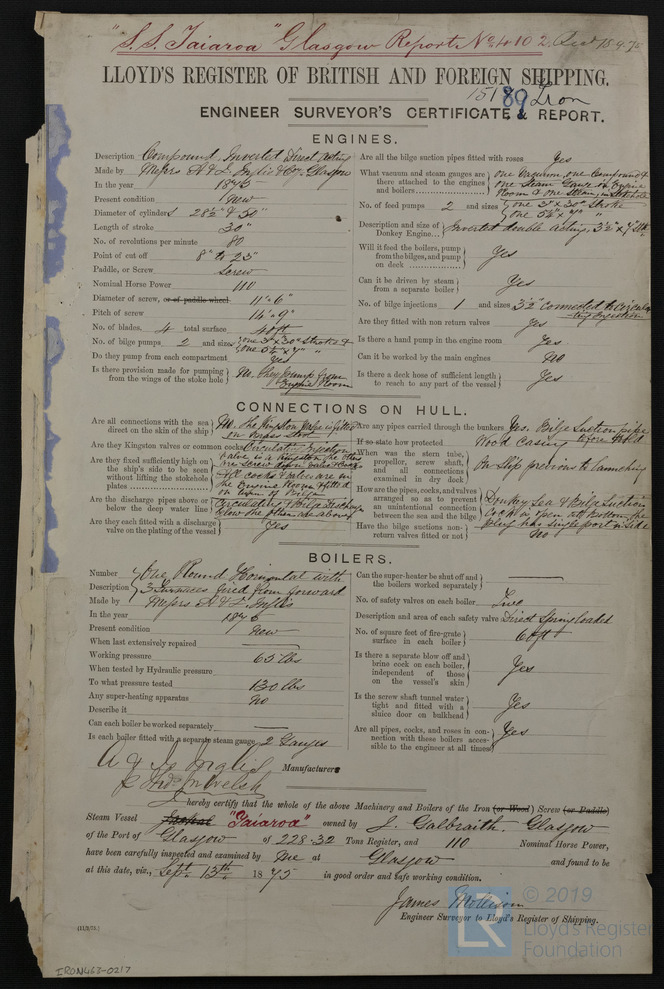 "S.S. Taiaroa" Glasgow Report No 4102. Recd 15.9.75
LLOYD'S REGISTER OF BRITISH AND FOREIGN SHIPPING.
15189 Iron
ENGINEER SURVEYOR'S CERTIFICATE & REPORT.
ENGINES.
Description Compound Inverted Direct Acting
Made by Messrs A & J Inglis & Co. Glasgow
In the year 1875
Present condition New
Diameter of cylinders 28½" & 50"
Length of stroke 30"
No. of revolutions per minute 80
Point of cut off 8" to 23"
Paddle, or Screw Screw
Nominal Horse Power 110
Diameter of screw, or of paddle wheel 11' 6"
Pitch of screw 14' 9"
No. of blades. 4 total surface 40 ft
No. of bilge pumps 2 and sizes one 3" x 30" stroke &
one 5¼" x 7" "
Do they pump from each compartment Yes
Is there provision made for pumping from the wings of the stoke hole No. They pump from Engine Room
Are all the bilge suction pipes fitted with roses Yes
What vacuum and steam gauges are there attached to the engines and boilers One Vacuum, one Compound & one Steam Gauge in Engine Room & one Steam in Stokehole
No. of feed pumps 2 and sizes one 3" x 30" Stroke
one 5¼" x 7" "
Description and size of Donkey Engine Inverted double acting, 5½" x 7" Stk
Will it feed the boilers, pump from the bilges, and pump on deck Yes
Can it be driven by steam from a separate boiler Yes
No. of bilge injections 1 and sizes 3½" connected to circulating Injection
Are they fitted with non return valves Yes
Is there a hand pump in the engine room Yes
Can it be worked by the main engines No
Is there a deck hose of sufficient length to reach to any part of the vessel Yes
CONNECTIONS ON HULL.
Are all connections with the sea direct on the skin of the ship No. The Kingston Valve is fitted on Brass
Are they Kingston valves or common cocks Circulating Injection Valve is a Kingston the others are screw down valves & Cocks
Are they fixed sufficiently high on the ship's side to be seen without lifting the stokehole plates All cocks & valves are in the Engine Room & fitted on
Are the discharge pipes above or below the deep water line Circulating & Bilge Discharge below the others are above
Are they each fitted with a discharge valve on the plating of the vessel Yes
Are any pipes carried through the bunkers Yes. Bilge Suction pipe
If so state how protected Wood Casing to fore Hold
When was the stern tube, propeller, screw shaft, and all connections examined in dry dock On Slip previous to launching
How are the pipes, cocks, and valves arranged so as to prevent an unintentional connection between the sea and the bilge Donkey Sea & Bilge Suction Cock is open at bottom, the plug has single port in side
Have the bilge suctions non-return valves fitted or not No
BOILERS.
Number One Round Horizontal with
Description 3 Furnaces fired from forward
Made by Messrs A & J. Inglis
In the year 1875
Present condition New
When last extensively repaired
Working pressure 65 lbs
When tested by Hydraulic pressure
To what pressure tested 130 lbs
Any super-heating apparatus No
Describe it
Can each boiler be worked separately
Is each boiler fitted with a separate steam gauge 2 Gauges
Can the super-heater be shut off and the boilers worked separately
No. of safety valves on each boiler Two
Description and area of each safety valve Direct Spring loaded
No. of square feet of fire-grate surface in each boiler 60 ft
Is there a separate blow off and brine cock on each boiler, independent of those on the vessel's skin Yes
Is the screw shaft tunnel water tight and fitted with a sluice door on bulkhead Yes
Are all pipes, cocks, and roses in connection with these boilers accessible to the engineer at all times Yes
A & J. Inglis Manufacturers
I hereby certify that the whole of the above Machinery and Boilers of the Iron (or Wood) Screw (or Paddle)
Steam Vessel "Taiaroa" owned by J. Galbraith. Glasgow
of the Port of Glasgow of 228.32 Tons Register, and 110 Nominal Horse Power,
have been carefully inspected and examined by me at Glasgow and found to be
at this date, viz., Sept. 13th 1875 in good order and safe working condition.
James Mollison
Engineer Surveyor to Lloyd's Register of Shipping.
IRON463-0217
© 2019
LR
Lloyd's Register
Foundation